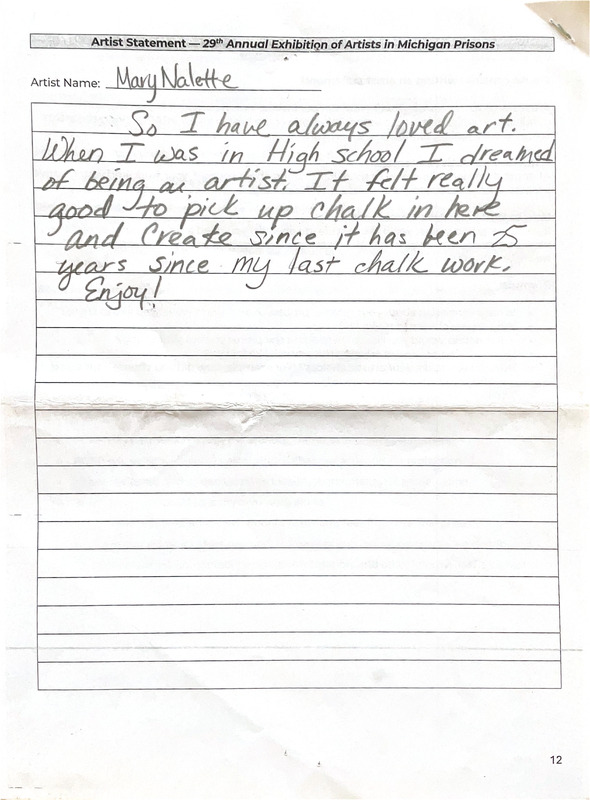 Artist Statement — 29th Annual Exhibition of Artists in Michigan Prisons
Artist Name: Mary Nalette
So I have always loved art.
When I was in High school I dreamed
of being an artist. It felt really
good to pick up chalk in here
and Create since it has been 25
years since my last chalk work.
Enjoy!
12